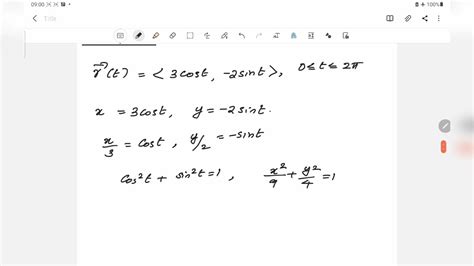 09:00
100%
Title
r⃗(t) = <3cost, -2sint>, 0≤t≤2π
x = 3cost, y = -2sint.
x/3 = cost, y/2 = -sint
cos²t + sin²t = 1, x²/9 + y²/4 = 1